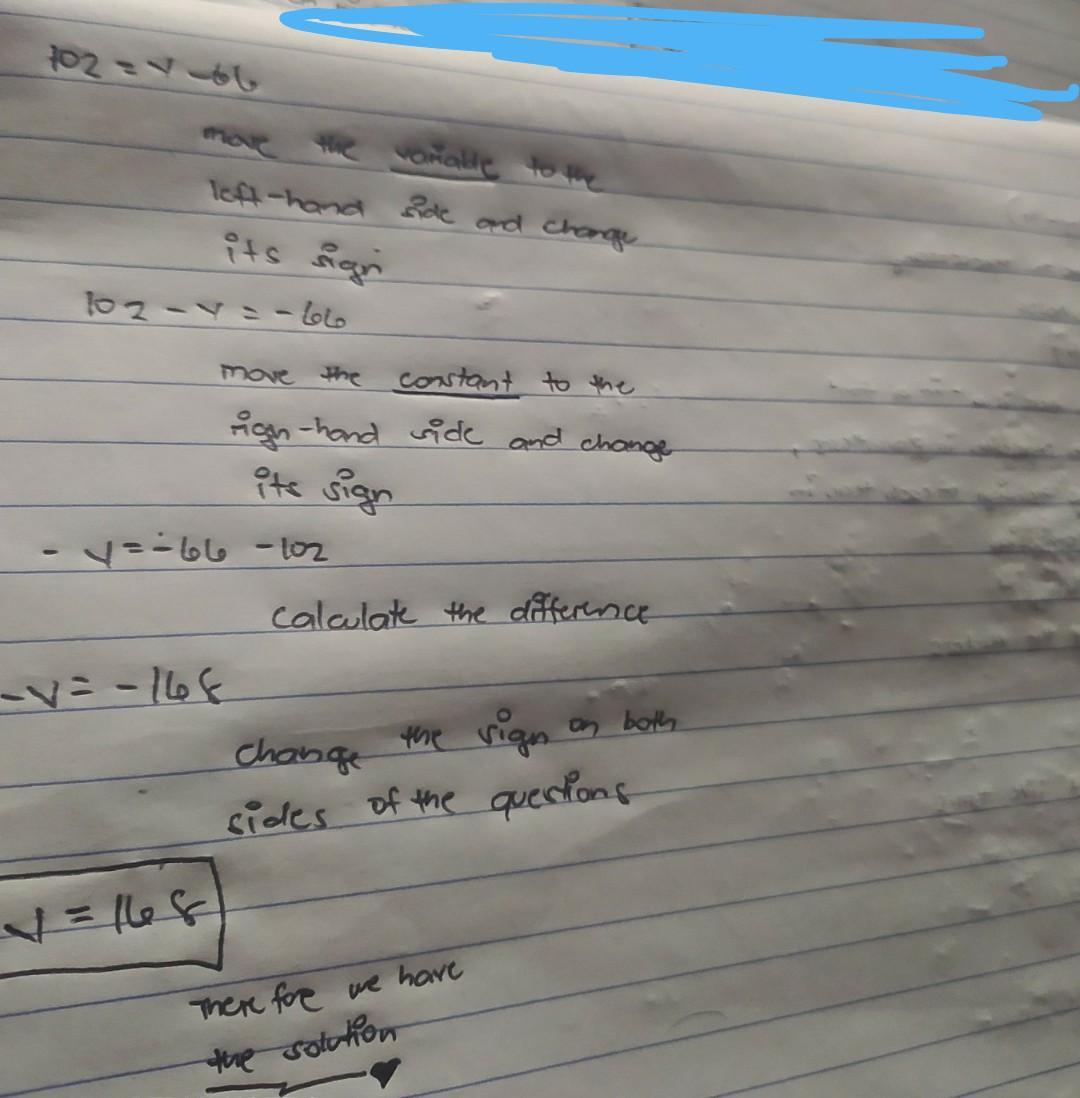 102 = v - 66
move the variable to the
left-hand side and change
its sign
102 - v = - 66
move the constant to the
rign-hand side and change
its sign
- v = - 66 - 102
calculate the difference
-v = - 168
change the sign on both
sides of the questions
v = 168
There fore we have
the solution